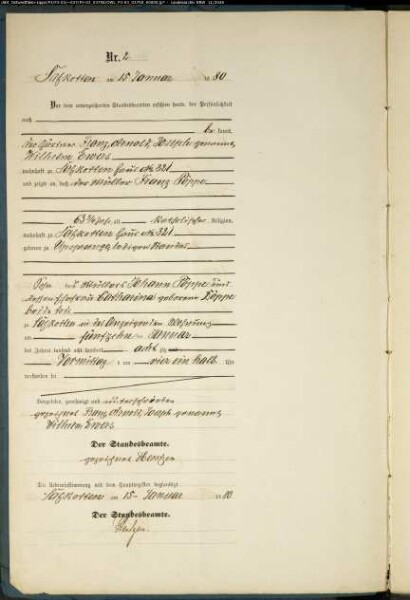 Nr. 2
Salzkotten am 15 Januar 1880
Vor dem unterzeichneten Standesbeamten erschien heute, der Persönlichkeit
nach
be kannt,
der Gärtner Franz, Arnold, Joseph genannt
Wilhelm Ewers
wohnhaft zu Salzkotten Haus No 321
und zeigte an, daß der Müller Franz Pöppe
63 3/4 Jahr alt, katholischer Religion,
wohnhaft zu Salzkotten Haus No 321
geboren zu ledigen Standes
Sohn des Müllers Johann Pöppe und
dessen Ehefrau Catharina geborene Pöppe
beide todt
zu Salzkotten in des Anzeigenden Wohnung
am fünfzehnten Januar
des Jahres tausend acht hundert achtzig
Vormittags um vier ein halb Uhr
verstorben sei
Vorgelesen, genehmigt und unterschrieben
gezeichnet Franz, Arnold, Joseph genannt
Wilhelm Ewers
Der Standesbeamte.
gezeichnet
Die Uebereinstimmung mit dem Hauptregister beglaubigt
Salzkotten am 15. Januar 1880
Der Standesbeamte.